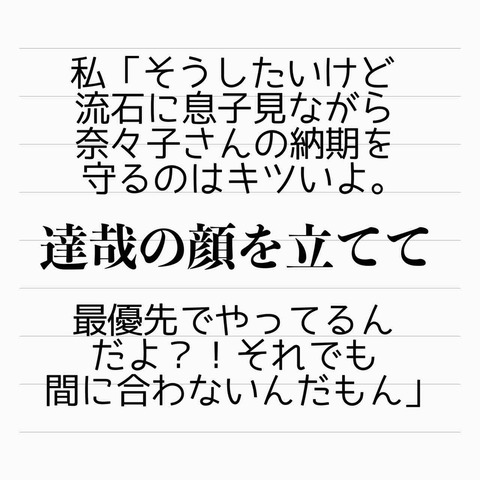 私「そうしたいけど
流石に息子見ながら
奈々子さんの納期を
守るのはキツいよ。
達哉の顔を立てて
最優先でやってるん
だよ？！それでも
間に合わないんだもん」